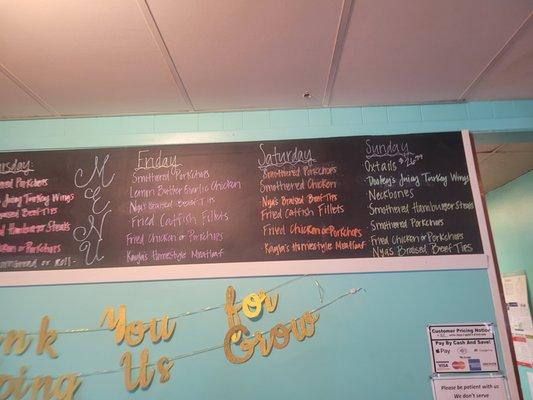 Friday
Smothered Porkchops
Lemon Butter Garlic Chicken
Nya's Braised Beef Tips
Fried Catfish Fillets
Fried Chicken or Porkchops
Kayla's Homestyle Meatloaf
Saturday
Smothered Porkchops
Smothered Chicken
Nya's Braised Beef Tips
Fried Catfish Fillets
Fried Chicken or Porkchops
Kayla's Homestyle Meatloaf
Sunday
Oxtails $26.99
Dooley's Juicy Turkey Wings
Neckbones
Smothered Hamburger Steaks
Smothered Porkchops
Fried Chicken or Porkchops
Nya's Braised Beef Tips
sday
Porkchops
Juicy Turkey Wings
Braised Beef Tips
Hamburger Steaks
Chicken or Porkchops
or Roll-
MENU
nk You for
ping Us Grow
Customer Pricing Notice
Pay By Cash And Save!
VISA
Please be patient with us
We don't serve